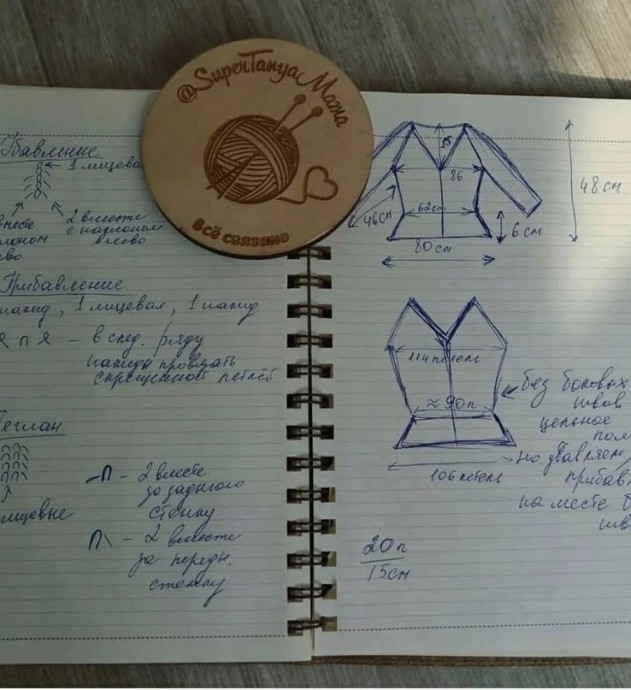 @SuperTanyaMama
всё связано
1 лицевая
2 вместе
с наклоном
влево
Прибавление
накид, 1 лицевая, 1 накид
– в след. ряду
накиды провязать
скрещенной петлёй
– 2 вместе
за заднюю
стенку
– 2 вместе
за передн.
стенку
15
86
48 см
46см
62см
6 см
80 см
114 петель
≈ 90п
106 петель
без боковых
швов
цельное
но убавляем
прибав
на месте б
шв
20п
15см